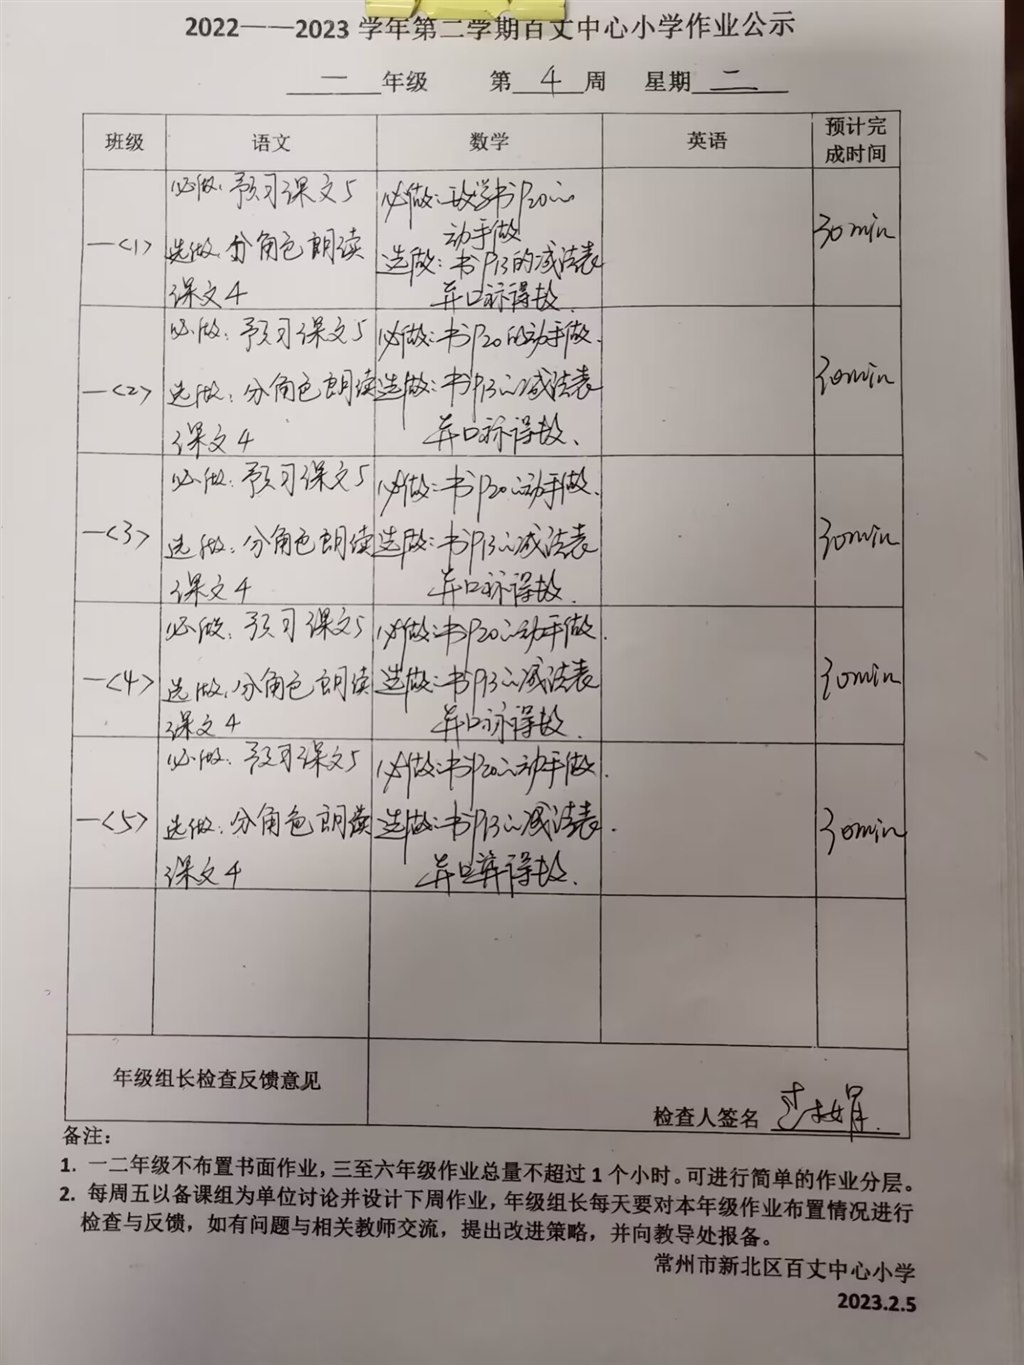 2022——2023 学年第二学期百丈中心小学作业公示
一 年级 第 4 周 星期 二
班级 语文 数学 英语 预计完成时间
一<1>
必做：预习课文5
选做：分角色朗读
课文4
必做：数学书P20的
动手做
选做：书P13的减法表
并口称得数.
30min
一<2>
必做：预习课文5
选做：分角色朗读
课文4
必做：书P20的动手做.
选做：书P13的减法表
并口称得数.
30min
一<3>
必做：预习课文5
选做：分角色朗读
课文4
必做：书P20的动手做.
选做：书P13的减法表
并口称得数.
30min
一<4>
必做：预习课文5
选做：分角色朗读
课文4
必做：书P20的动手做.
选做：书P13的减法表
并口称得数.
30min
一<5>
必做：预习课文5
选做：分角色朗读
课文4
必做：书P20的动手做.
选做：书P13的减法表.
并口算得数.
30min
年级组长检查反馈意见
检查人签名
备注：
1. 一二年级不布置书面作业，三至六年级作业总量不超过 1 个小时。可进行简单的作业分层。
2. 每周五以备课组为单位讨论并设计下周作业，年级组长每天要对本年级作业布置情况进行
检查与反馈，如有问题与相关教师交流，提出改进策略，并向教导处报备。
常州市新北区百丈中心小学
2023.2.5